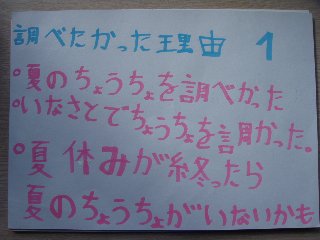 調べたかった理由 1
・夏のちょうちょを調べかった
・いなさとでちょうちょを調かった。
・夏休みが終ったら
夏のちょうちょがいないかも